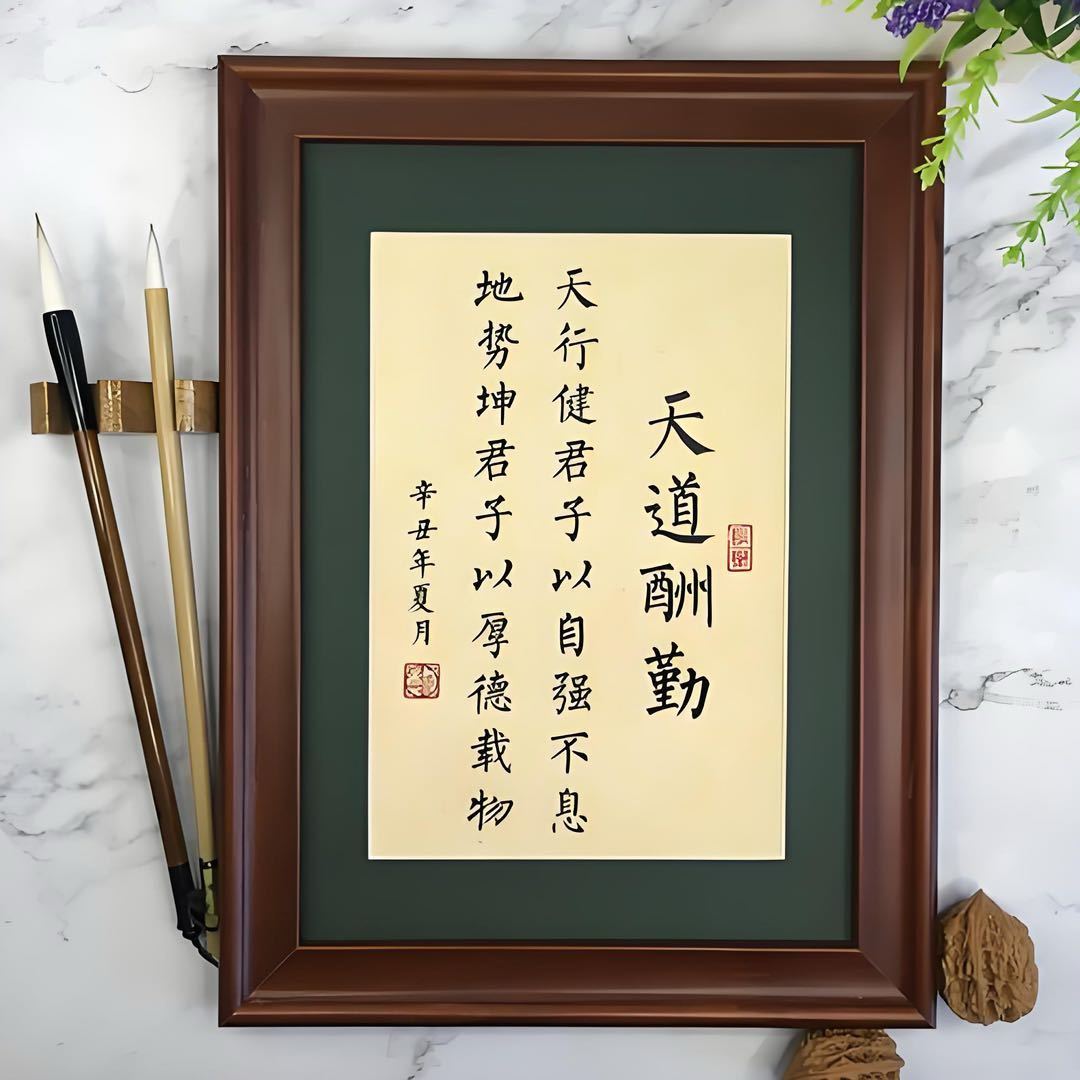 天道酬勤
天行健君子以自强不息
地势坤君子以厚德载物
辛丑年夏月